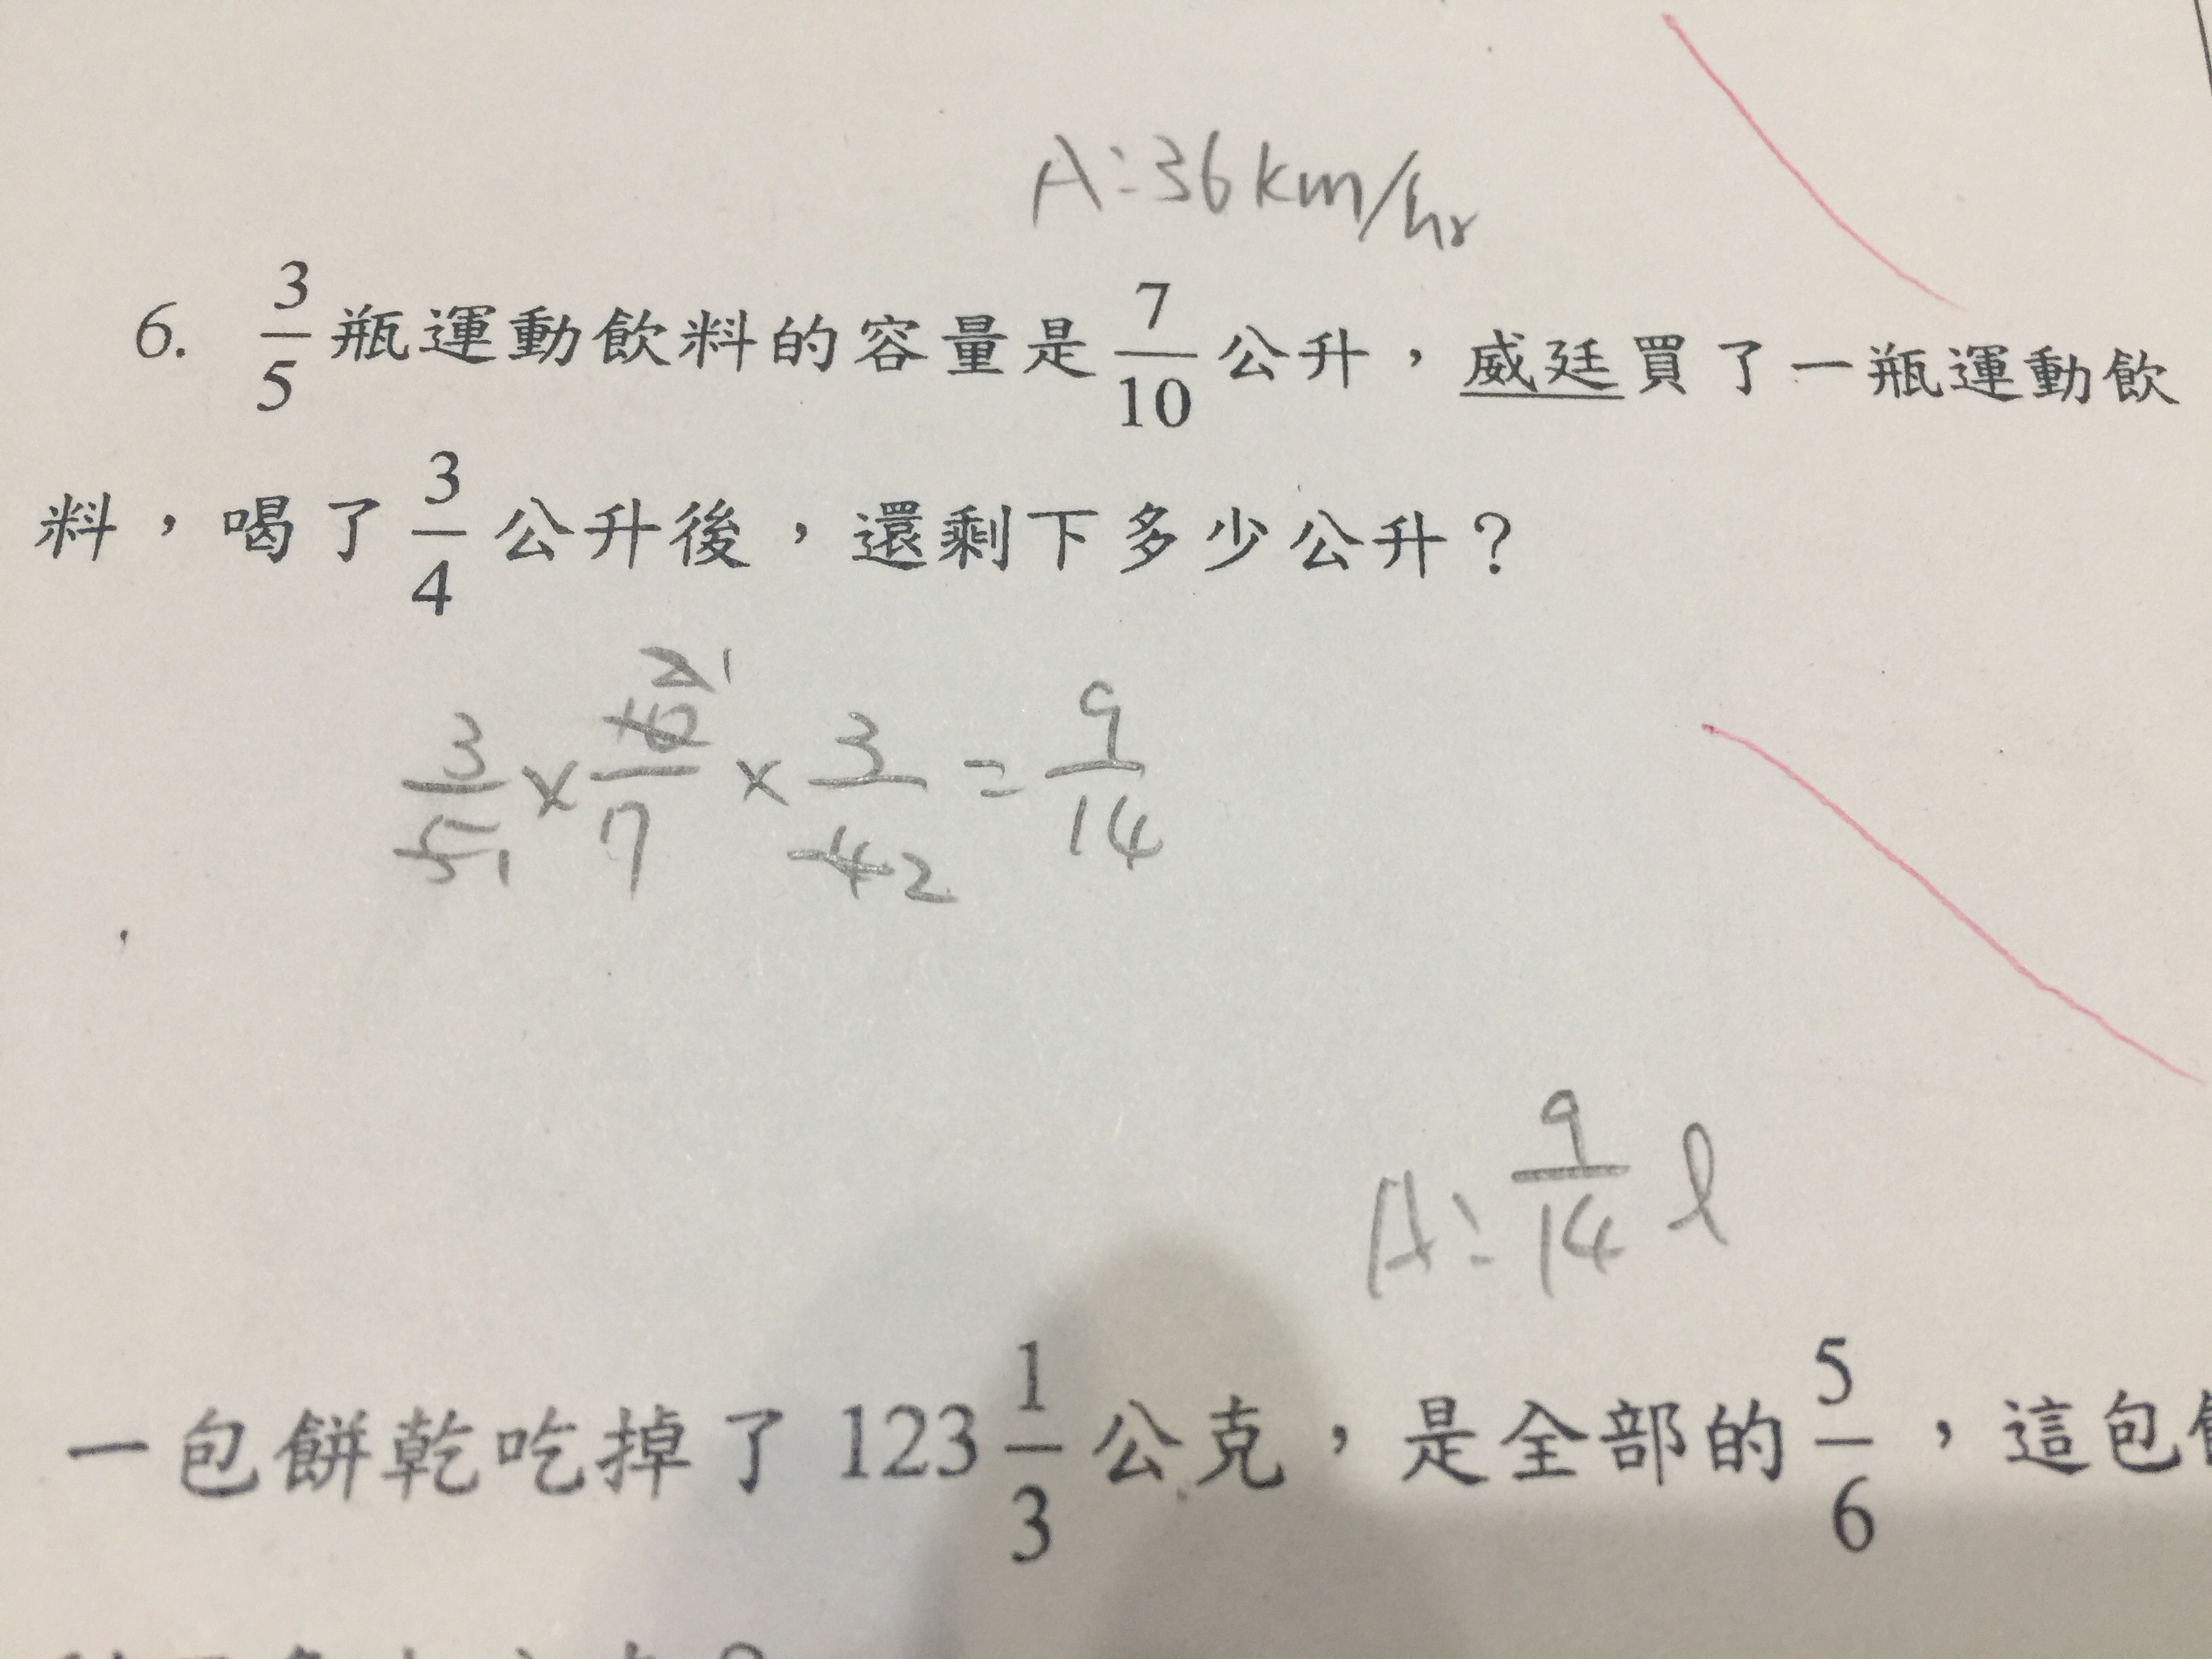 A:36km/hr
6. 3/5瓶運動飲料的容量是7/10公升，威廷買了一瓶運動飲
料，喝了3/4公升後，還剩下多少公升？
3/5 1 × 10 2 1/7 × 3/4 2 = 9/14
A: 9/14 l
一包餅乾吃掉了 123 1/3 公克，是全部的 5/6，這包